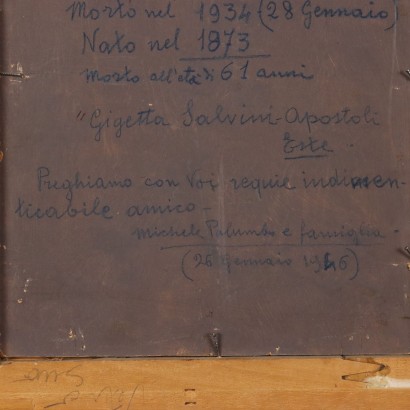 Morto nel 1934 (28 Gennaio)
Nato nel 1873
Morto all'età di 61 anni
"Gigetta Salvini-Apostoli
Este.
Preghiamo con Voi requie indimen-
ticabile amico-
Michele Palumbo e famiglia.
(26 Gennaio 1946)